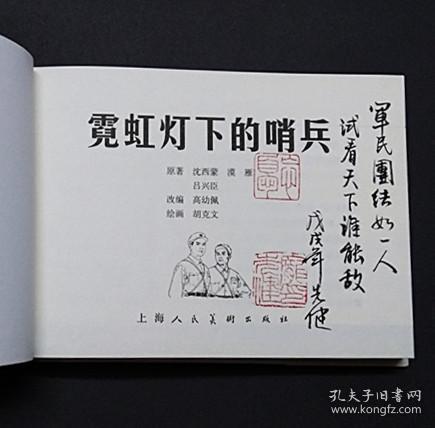 霓虹灯下的哨兵
原著 沈西蒙 漠雁
吕兴臣
改编 高幼佩
绘画 胡克文
上海人民美術出版社
軍民團结如一人
试看天下谁能敌
戊戌年 先健
孔夫子旧书网
www.kongfz.com